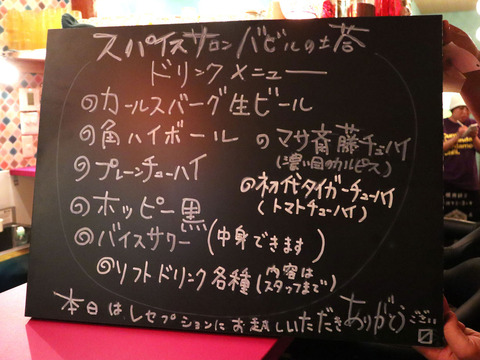 スパイスサロンバビルの塔
ドリンクメニュー
のカールスバーグ生ビール
の角ハイボール
のマサ斎藤チューハイ
(濃い目のカルピス)
のプレーンチューハイ
の初代タイガーチューハイ
(トマトチューハイ)
のホッピー黒
のバイスサワー(中身できます)
のソフトドリンク各種(内容はスタッフまで)
本日はレセプションにお越しいただきありがとうござい